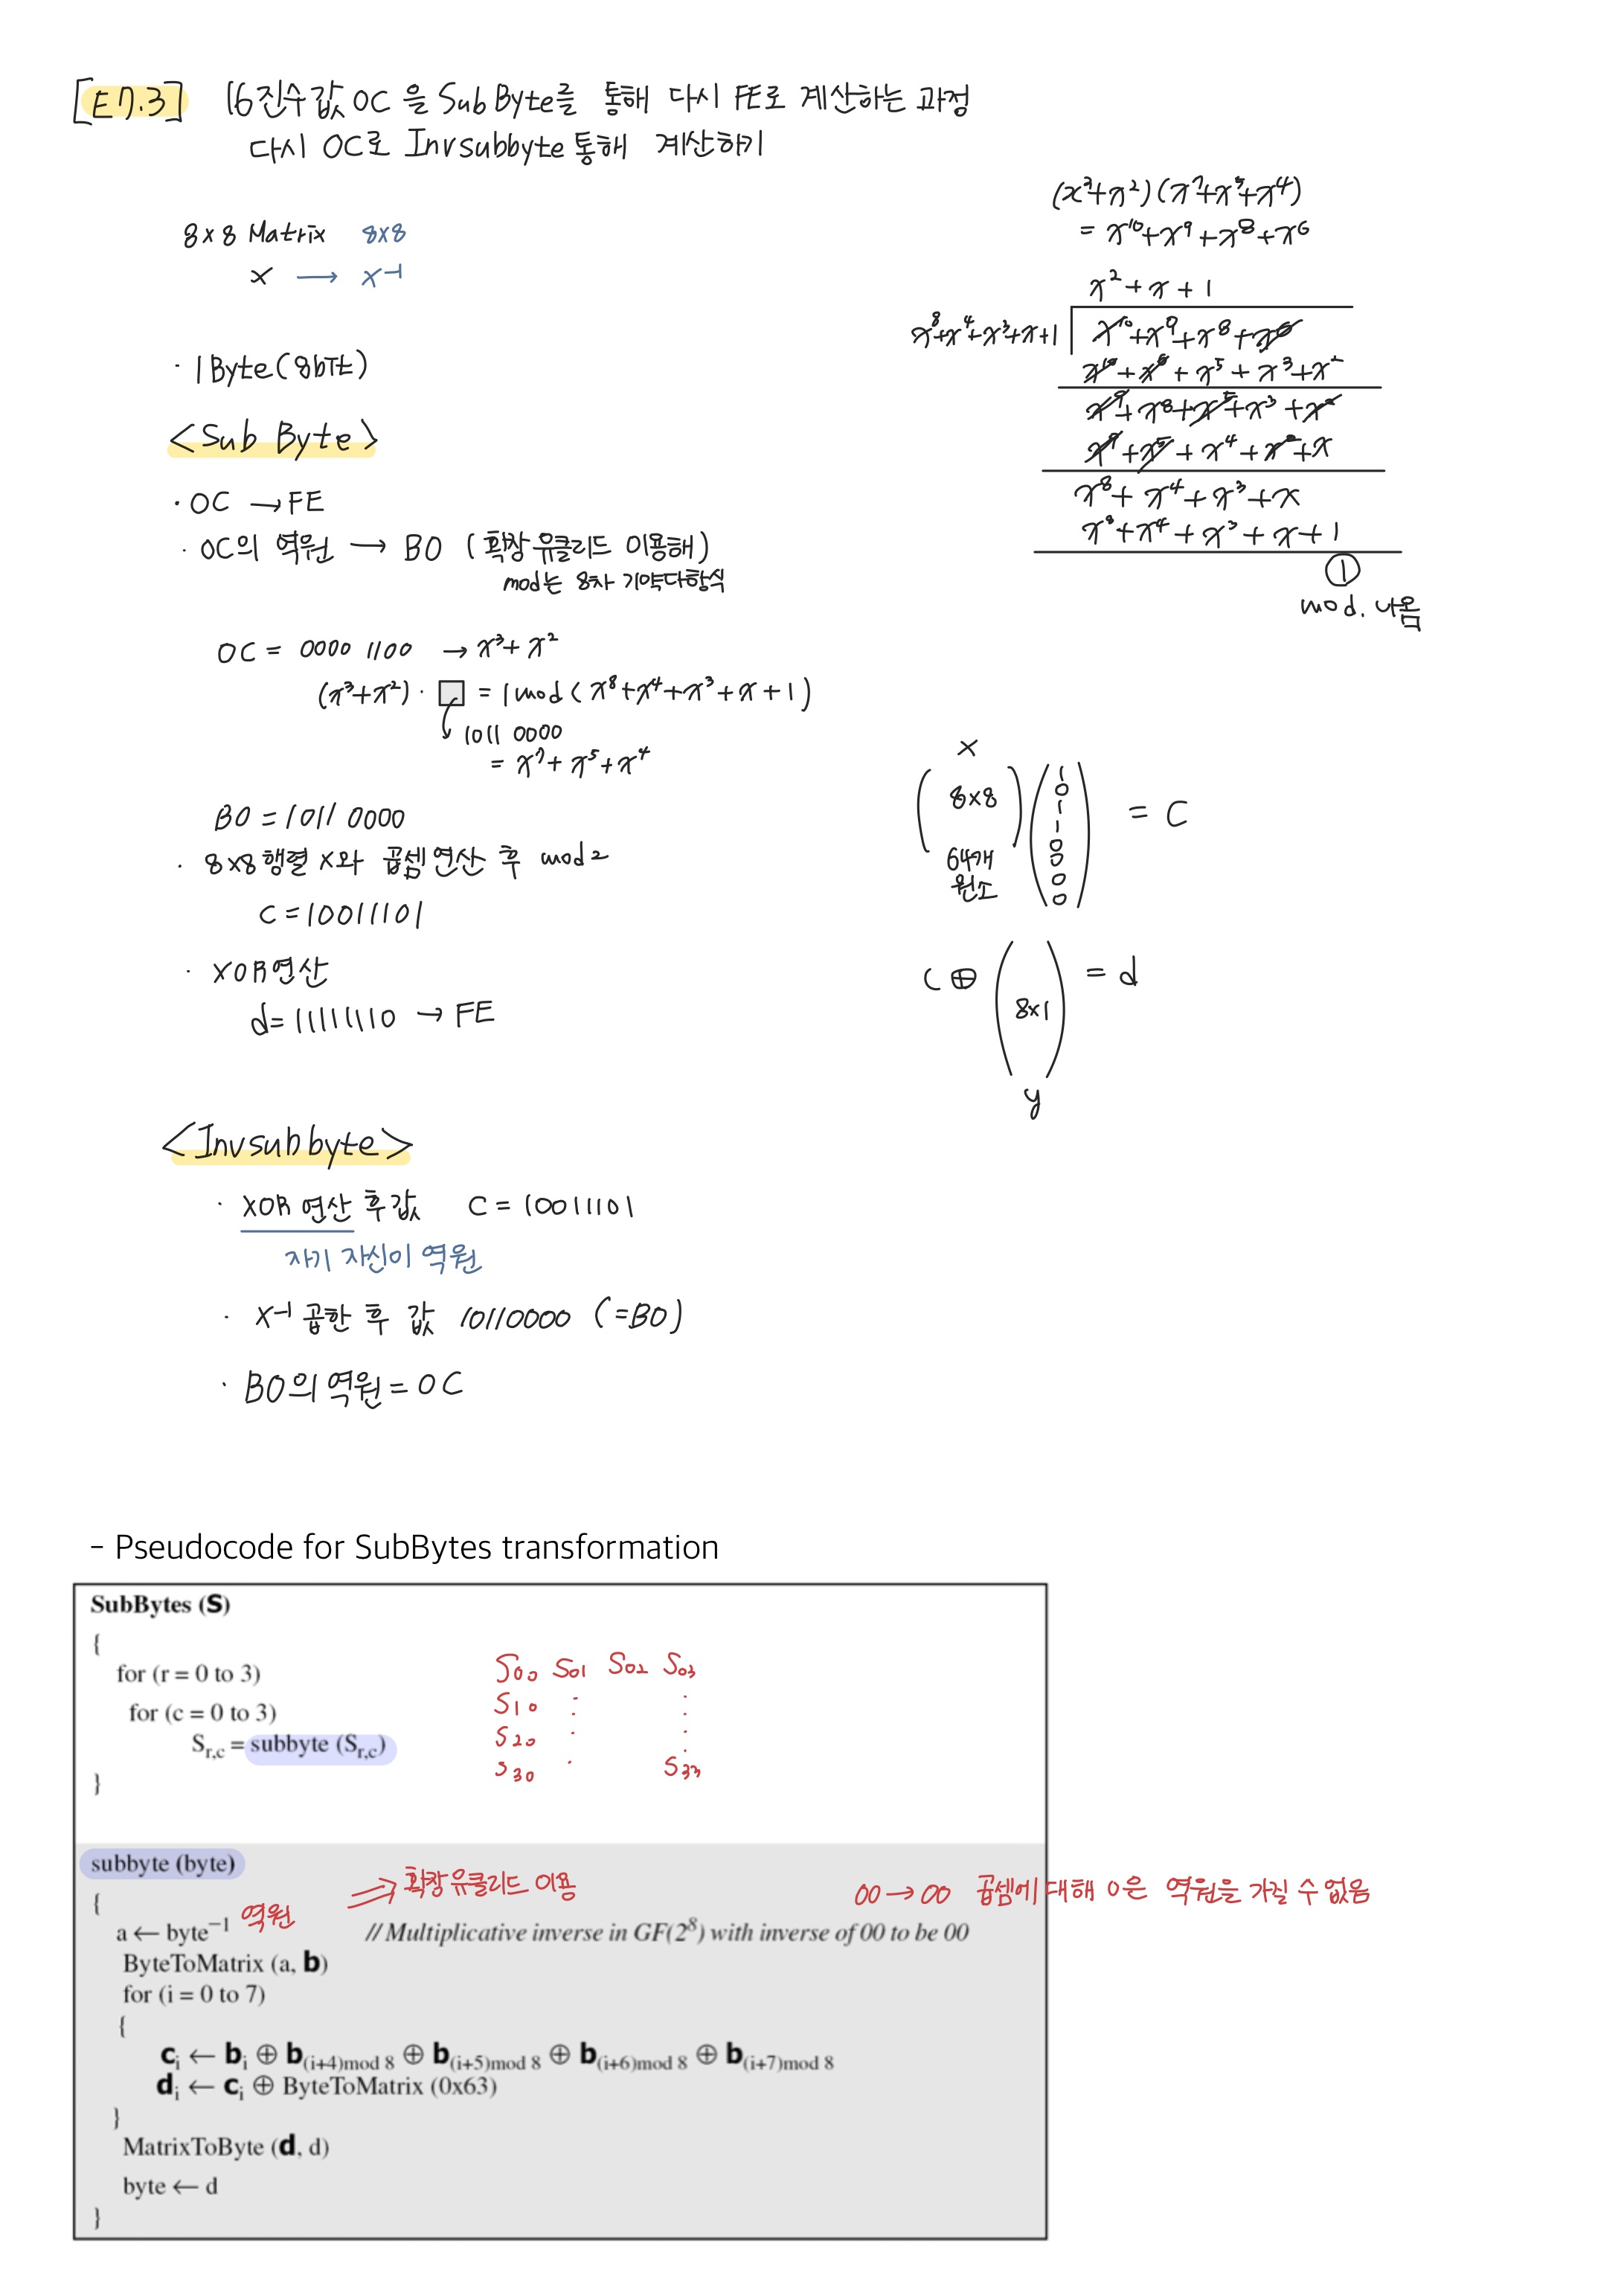 [E7.3] 16진수값 0C 을 SubByte를 통해 다시 FE로 계산하는 과정
다시 0C로 Invsubbyte통해 계산하기
8×8 Matrix 8×8
x → x⁻¹
· 1Byte(8bit)
<Sub Byte>
· 0C → FE
· 0C의 역원 → B0 (확장 유클리드 이용해)
mod는 8차 기약다항식
0C = 0000 1100 → x³+x²
(x³+x²) · □ = 1 mod (x⁸+x⁴+x³+x+1)
1011 0000
= x⁷+x⁵+x⁴
B0 = 1011 0000
· 8×8행렬 x와 곱셈연산 후 mod2
C = 10011101
· XOR연산
d = 11111110 → FE
(x³+x²)(x⁷+x⁵+x⁴)
= x¹⁰+x⁹+x⁸+x⁶
x²+x+1
x⁸+x⁴+x³+x+1 x¹⁰+x⁹+x⁸+x⁶
x¹⁰+x⁶+x⁵+x³+x²
x⁹+x⁸+x⁵+x³+x²
x⁹+x⁵+x⁴+x²+x
x⁸+x⁴+x³+x
x⁸+x⁴+x³+x+1
①
mod. 나옴
x
(8×8 64개 원소) (1 0 1 1 0 0 0 0) = C
C ⊕ (8×1) = d
y
<Invsubbyte>
· XOR 연산 후 값 C = 10011101
자기 자신이 역원
· X⁻¹ 곱한 후 값 10110000 (=B0)
· B0의 역원 = 0C
- Pseudocode for SubBytes transformation
SubBytes (S)
{
for (r = 0 to 3)
for (c = 0 to 3)
S_r,c = subbyte (S_r,c)
}
S₀₀ S₀₁ S₀₂ S₀₃
S₁₀ : :
S₂₀ · :
S₃₀ · S₃₃
subbyte (byte)
{
⇒ 확장유클리드 이용
00 → 00 곱셈에 대해 0은 역원을 가질 수 없음
a ← byte⁻¹ 역원 // Multiplicative inverse in GF(2⁸) with inverse of 00 to be 00
ByteToMatrix (a, b)
for (i = 0 to 7)
{
c_i ← b_i ⊕ b_(i+4)mod 8 ⊕ b_(i+5)mod 8 ⊕ b_(i+6)mod 8 ⊕ b_(i+7)mod 8
d_i ← c_i ⊕ ByteToMatrix (0x63)
}
MatrixToByte (d, d)
byte ← d
}